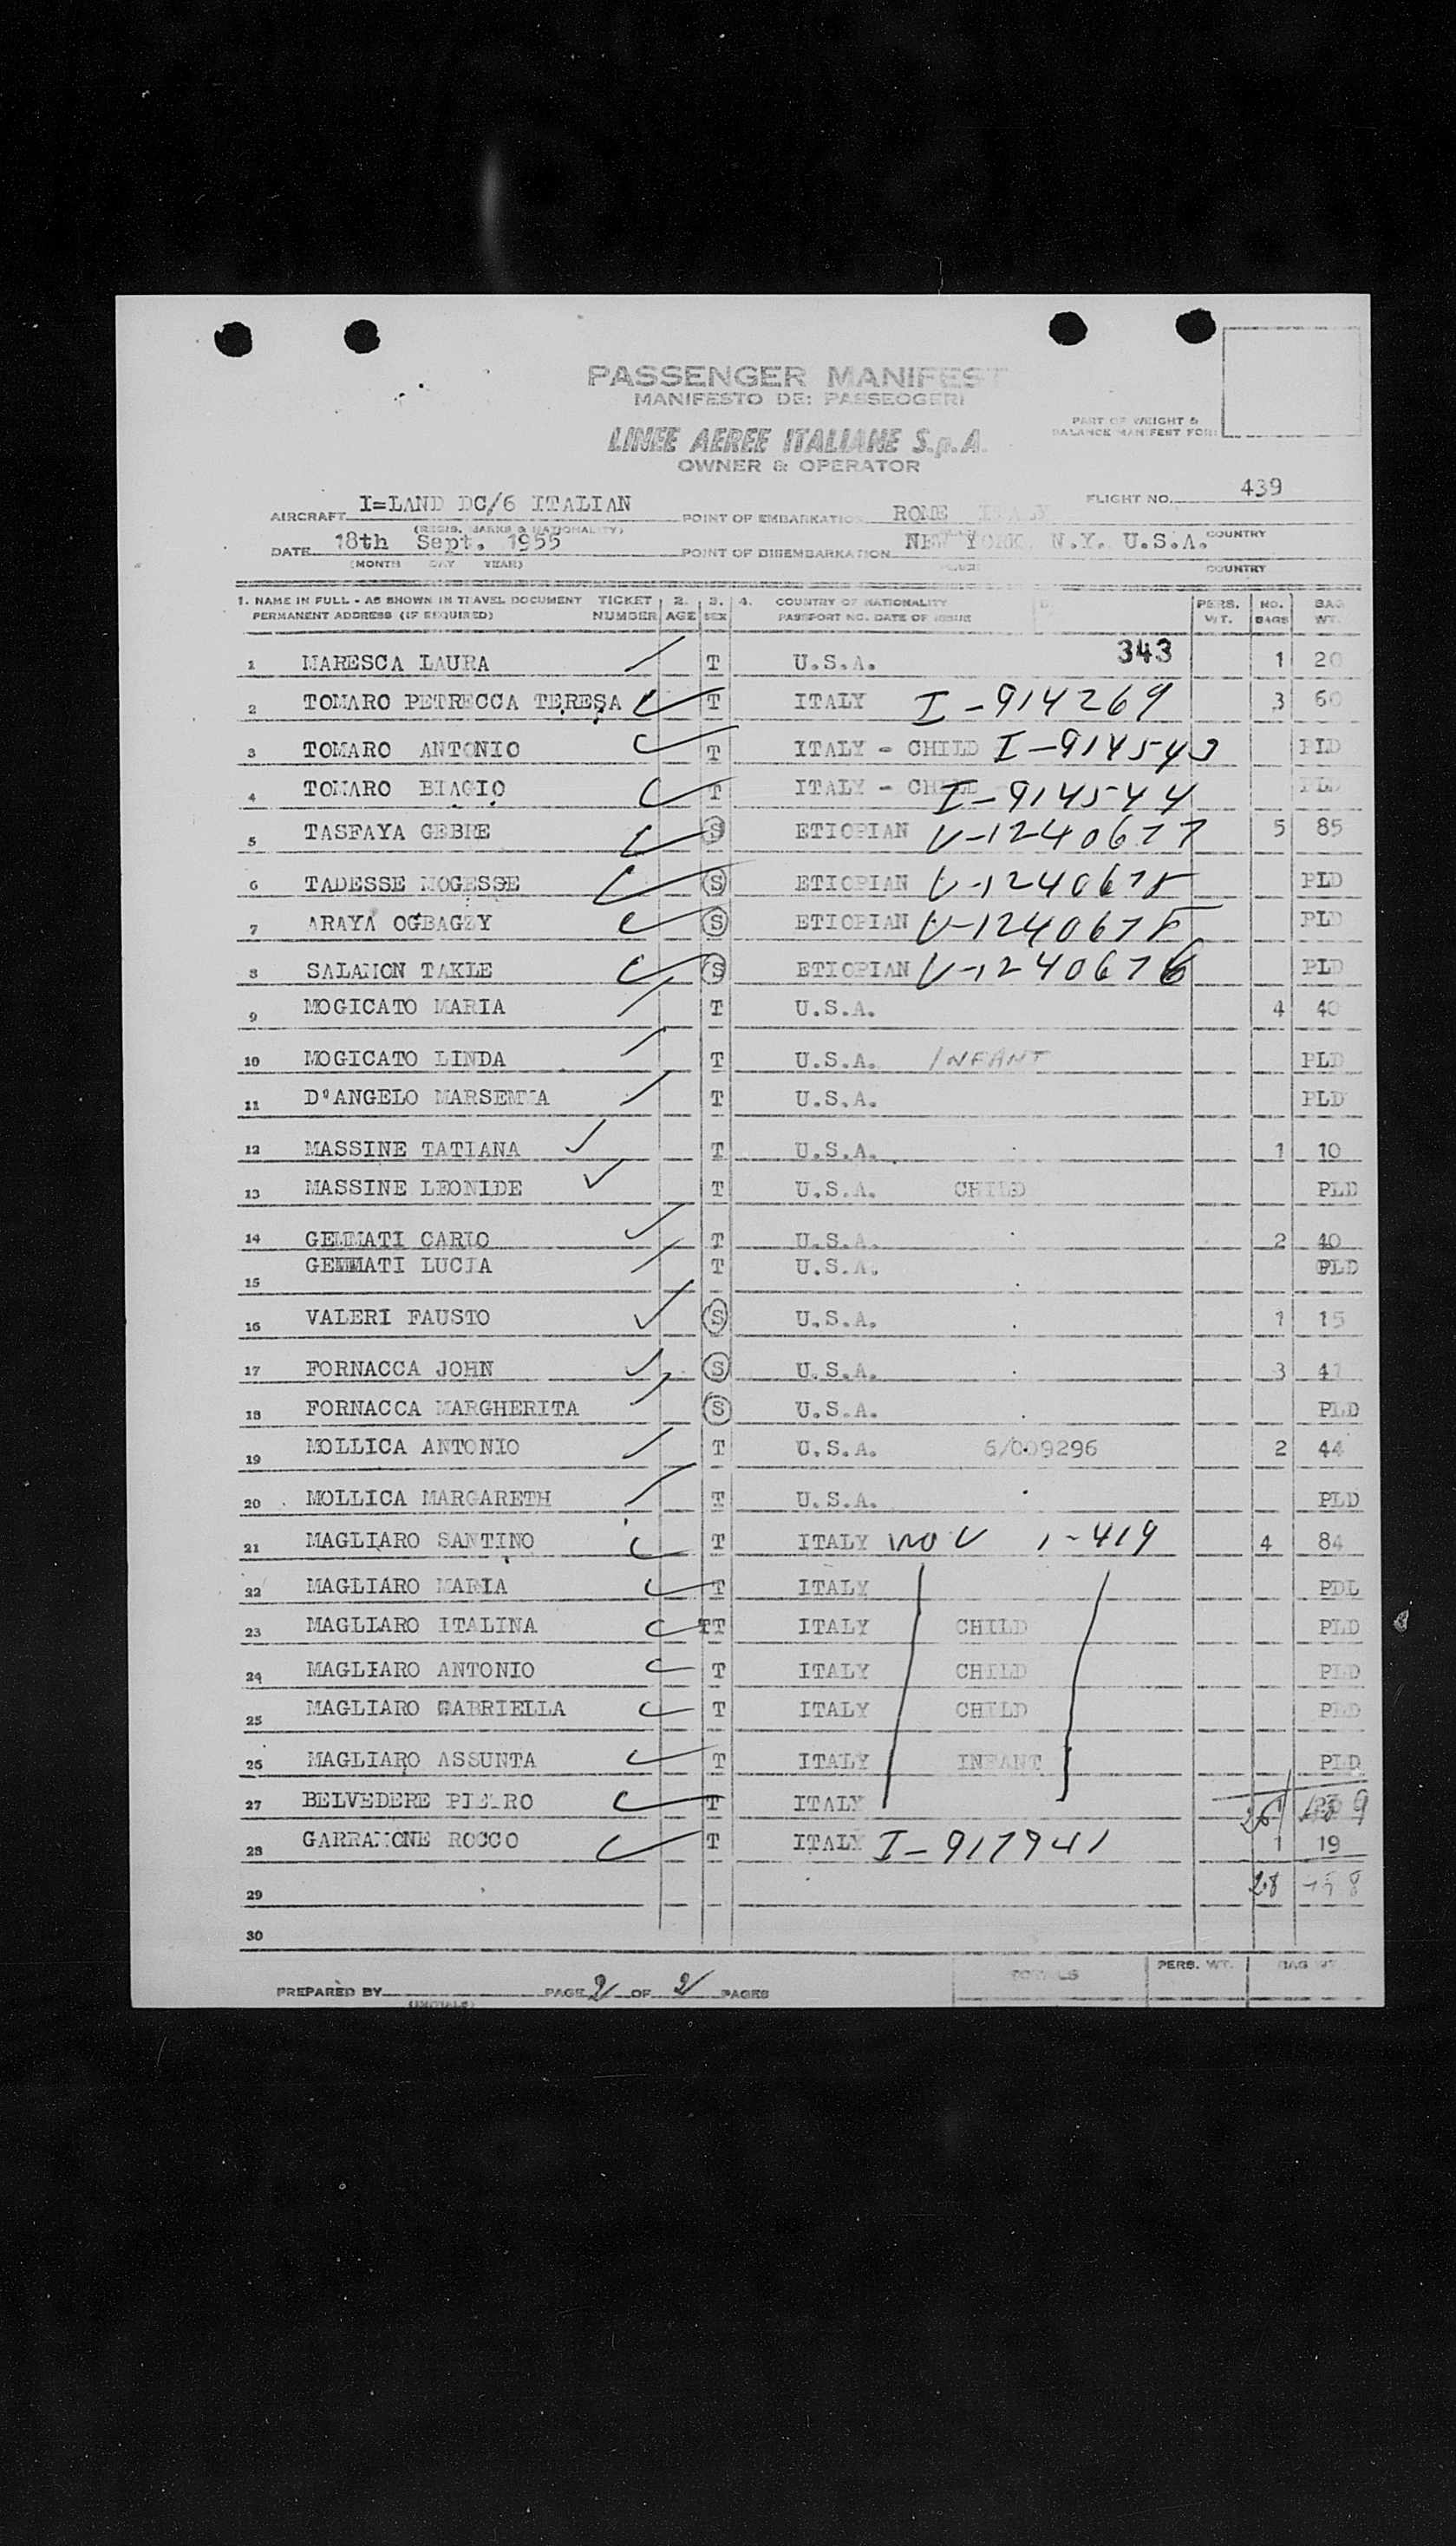 PASSENGER MANIFEST
MANIFESTO DEI PASSEGGERI
PART OF WEIGHT &
BALANCE MANIFEST FOR:
LINEE AEREE ITALIANE S.p.A.
OWNER & OPERATOR
AIRCRAFT I=LAND DC/6 ITALIAN POINT OF EMBARKATION ROME ITALY FLIGHT NO. 439
(REGIS. MARKS & NATIONALITY) COUNTRY
DATE 18th Sept. 1955 POINT OF DISEMBARKATION NEW YORK N.Y. U.S.A.
(MONTH DAY YEAR) COUNTRY
1. NAME IN FULL - AS SHOWN IN TRAVEL DOCUMENT TICKET 2. 3. 4. COUNTRY OF NATIONALITY PERS. NO. BAG
PERMANENT ADDRESS (IF REQUIRED) NUMBER AGE SEX PASSPORT NO. DATE OF ISSUE WT. BAGS WT.
1 MARESCA LAURA T U.S.A. 343 1 20
2 TOMARO PETRECCA TERESA T ITALY I-914269 3 60
3 TOMARO ANTONIO T ITALY - CHILD I-914543 PLD
4 TOMARO BIAGIO T ITALY - CHILD I-914544 PLD
5 TASFAYA GEBRE S ETIOPIAN V-1240677 5 85
6 TADESSE MOGESSE S ETIOPIAN V-1240675 PLD
7 ARAYA OGBAGZY S ETIOPIAN V-1240678 PLD
8 SALAMON TAKLE S ETIOPIAN V-1240676 PLD
9 MOGICATO MARIA T U.S.A. 4 40
10 MOGICATO LINDA T U.S.A. INFANT PLD
11 D'ANGELO T U.S.A. PLD
12 MASSINE TATIANA T U.S.A. 1 10
13 MASSINE LEONIDE T U.S.A. CHILD PLD
14 GEMMATI CARLO T U.S.A. 2 40
15 GEMMATI LUCIA T U.S.A. PLD
16 VALERI FAUSTO S U.S.A. 1 15
17 FORNACCA JOHN S U.S.A. 3 41
18 FORNACCA MARGHERITA S U.S.A. PLD
19 MOLLICA ANTONIO T U.S.A. 6/009296 2 44
20 MOLLICA MARGARETH T U.S.A. PLD
21 MAGLIARO SANTINO T ITALY 1-419 4 84
22 MAGLIARO MARIA T ITALY PDL
23 MAGLIARO ITALINA TT ITALY CHILD PLD
24 MAGLIARO ANTONIO T ITALY CHILD PLD
25 MAGLIARO GABRIELLA T ITALY CHILD PLD
26 MAGLIARO ASSUNTA T ITALY INFANT PLD
27 BELVEDERE PIETRO T ITALY
28 GARRAMONE ROCCO T ITALY I-917941 1 19
29 28
30
PREPARED BY PAGE 2 OF 2 PAGES TOTALS PERS. WT. BAG WT.
(INITIALS)